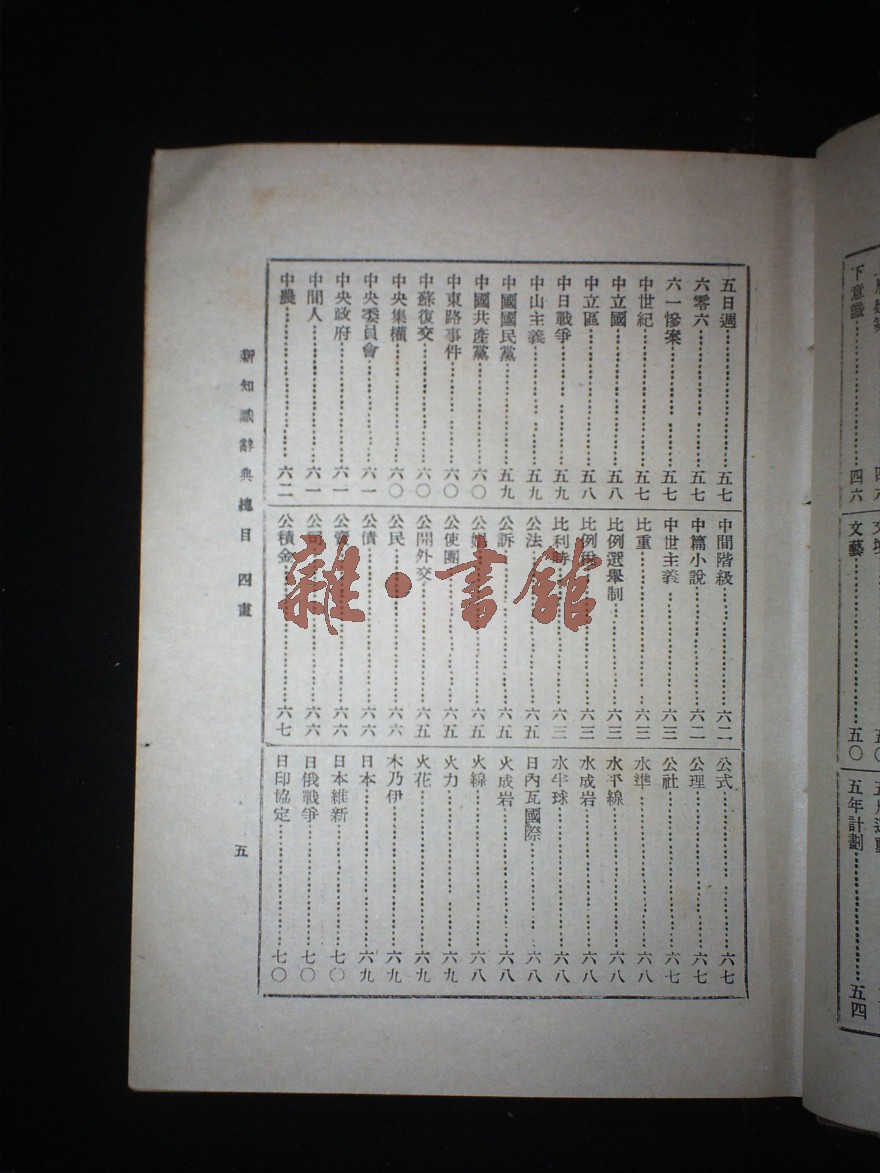 五日週……五七
六零六……五七
六一慘案……五七
中世紀……五七
中立國……五八
中立區……五八
中日戰爭……五九
中山主義……五九
中國國民黨……五九
中國共產黨……六〇
中東路事件……六〇
中蘇復交……六〇
中央集權……六〇
中央委員會……六一
中央政府……六一
中間人……六一
中農……六二
中間階級……六二
中篇小說……六二
中世主義……六三
比重……六三
比例選舉制……六三
比例……六三
比利時……六三
公法……六五
公訴……六五
公娼……六五
公使團……六五
公開外交……六五
公民……六六
公債……六六
公賣……六六
公司……六六
公積金……六七
公式……六七
公理……六七
公社……六七
水準……六八
水平線……六八
水成岩……六八
水半球……六八
日內瓦國際……六八
火成岩……六八
火線……六八
火力……六九
火花……六九
木乃伊……六九
日本……六九
日本維新……七〇
日俄戰爭……七〇
日印協定……七〇
新知識辭典總目 四畫
五
下意識……四六
文藝……五〇
五年計劃……五四
雜·書館